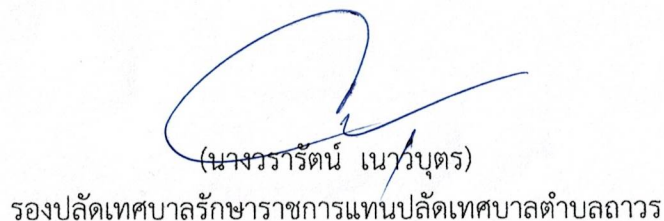 (นางวรารัตน์  เนาว์บุตร)
รองปลัดเทศบาลรักษาราชการแทนปลัดเทศบาลตำบลถาวร